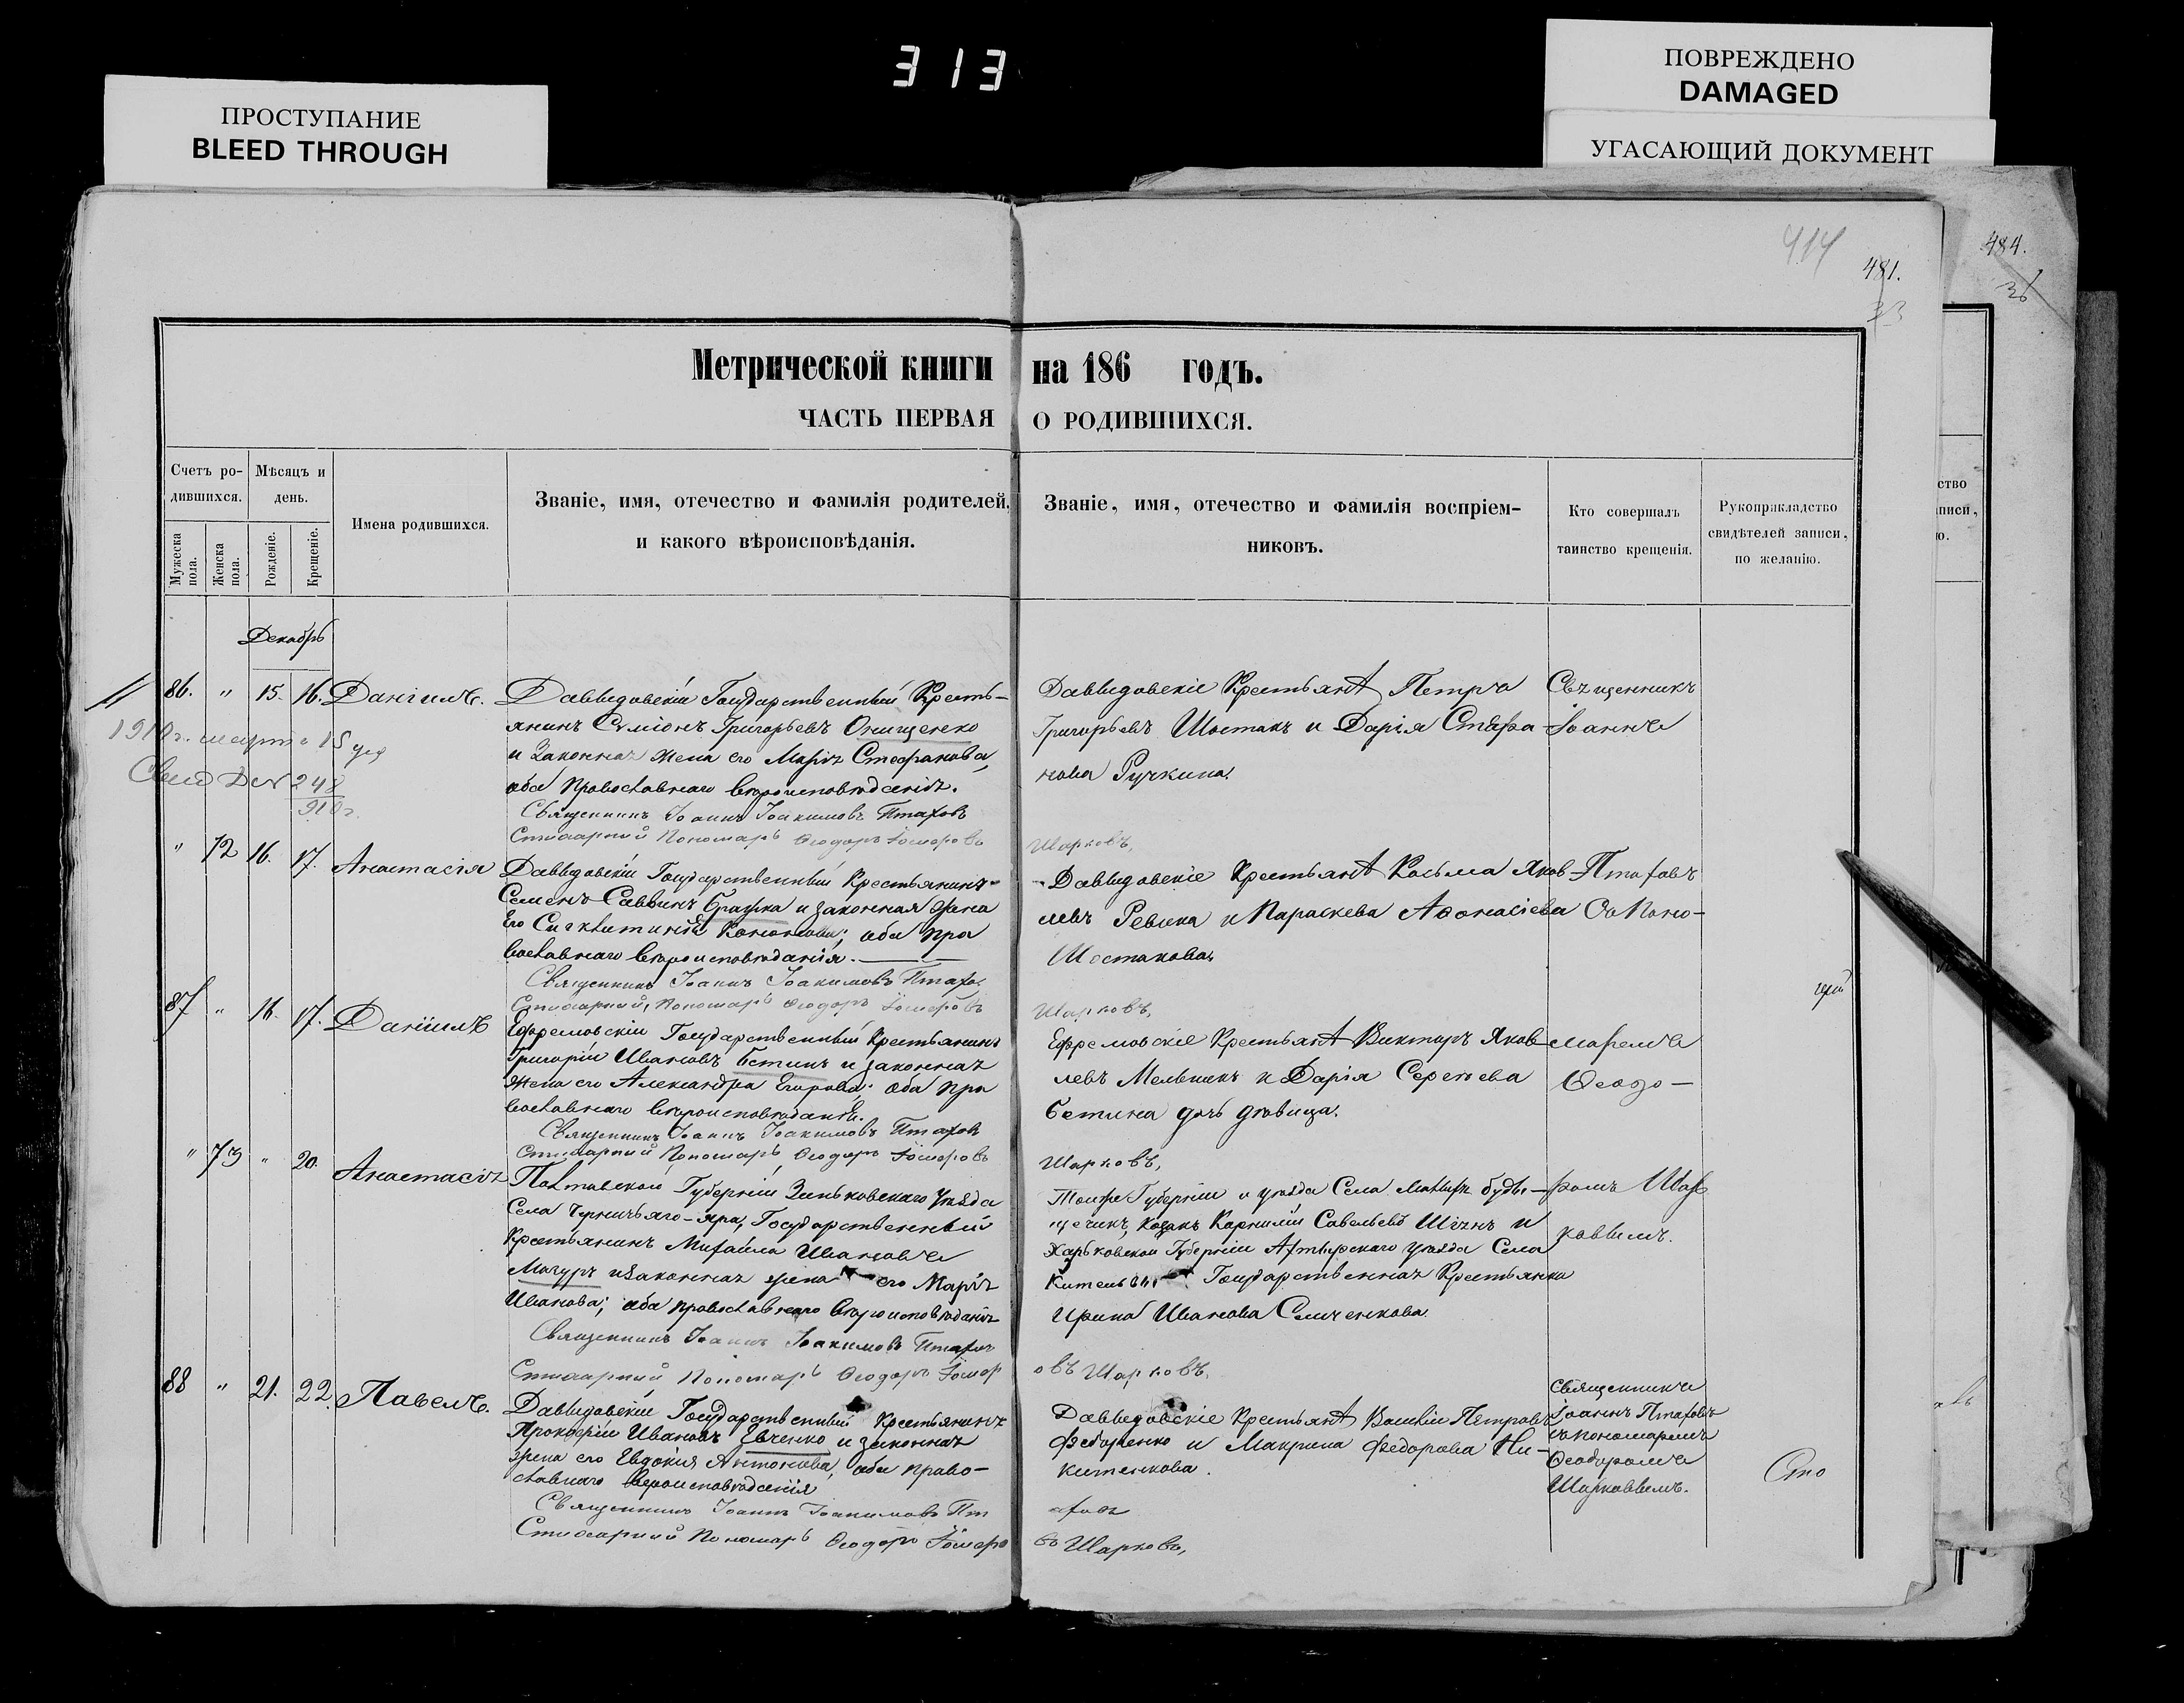 313
ПРОСТУПАНИЕ
BLEED THROUGH
ПОВРЕЖДЕНО
DAMAGED
УГАСАЮЩИЙ ДОКУМЕНТ
414
481.
33
484.
36
Метрической книги на 186 годъ.
ЧАСТЬ ПЕРВАЯ О РОДИВШИХСЯ.
Счетъ ро-
дившихся.
Мужеска
пола.
Женска
пола.
Мѣсяцъ и
день.
Рожденіе.
Крещеніе.
Имена родившихся.
Званіе, имя, отечество и фамилія родителей,
и какого вѣроисповѣданія.
Званіе, имя, отечество и фамилія воспріем-
никовъ.
Кто совершалъ
таинство крещенія.
Рукоприкладство
свидѣтелей записи,
по желанію.
Декабрь
86. " 15. 16. Даніилъ.
Давыдовскій Государственный Кресть-
янинъ Григорьевъ Онищенко
и Законная жена его Марія Стефанова,
оба православнаго вѣроисповѣданія.
Священникъ Іоаннъ Іоакимовъ Птаховъ
Стихарный Пономарь Ѳеодоръ
Шарковъ,
Давыдовскіе Крестьянѣ Петръ
Григорьевъ Шостакъ и Дарія Стефа-
нова Ручкина.
Священникъ
Іоаннъ
1910г. марта 15
248
910г.
" 72 16. 17. Анастасія
Давыдовскій Государственный Крестьянинъ
Семенъ Саввинъ Бражка и законная жена
Его Кононова; оба пра
вославнаго вѣроисповѣданія.
Священникъ Іоаннъ Іоакимовъ Птахов
Стихарный, Пономарь Ѳеодоръ
Шарковъ,
Давыдовскіе Крестьянѣ Косьма Яков-
левъ Ревека и Параскева Аѳонасіева
Шостакова,
Птаховъ
Со Поно-
87 " 16. 17. Даніилъ
Ефремовскій Государственный Крестьянинъ
Григорій Ивановъ Бетинъ и законная
жена его Александра Егорова; оба пра
вославнаго вѣроисповѣданія.
Священникъ Іоаннъ Іоакимовъ Птаховъ
Стихарный Пономарь Ѳеодоръ
Шарковъ,
Ефремовскіе Крестьянѣ Викторъ Яков-
левъ Мельникъ и Дарія Сергѣева
Бетина дочь дѣвица.
маремъ
Ѳеодо-
" 73 " 20. Анастасія
Полтавской Губерніи Зиньковскаго уѣзда
Села Черничьяго-яра, Государственный
Крестьянинъ Михаилъ Ивановъ
Мачуръ и законная жена его Марія
Иванова; оба православнаго вѣроисповѣданія
Священникъ Іоаннъ Іоакимовъ Птахов
Стихарный Пономарь Ѳеодоръ
овъ Шарковъ,
Тойже Губерніи и уѣзда Села Малыхъ буды-
щечикъ, Козакъ Корнилій Савельевъ и
Харьковской Губерніи Ахтырскаго уѣзда Села
Государственная Крестьянка
Ирина Иванова Семченкова.
ромъ Шар
ковымъ.
88 " 21. 22. Павелъ.
Давыдовскій Государственный Крестьянинъ
Прокофій Ивановъ Евченко и законная
жена его Евдокія Антонова, оба право-
славнаго вѣроисповѣданія
Священникъ Іоаннъ Іоакимовъ Пт
аховъ
Стихарный Пономарь Ѳеодоръ
въ Шарковъ,
Давыдовскіе Крестьянѣ Василій Петровъ
Федоренко и Макрина Федорова Ни-
китенкова.
Священникъ
Іоаннъ Птаховъ
съ пономаремъ
Ѳеодоромъ
Шарковымъ.
Сто